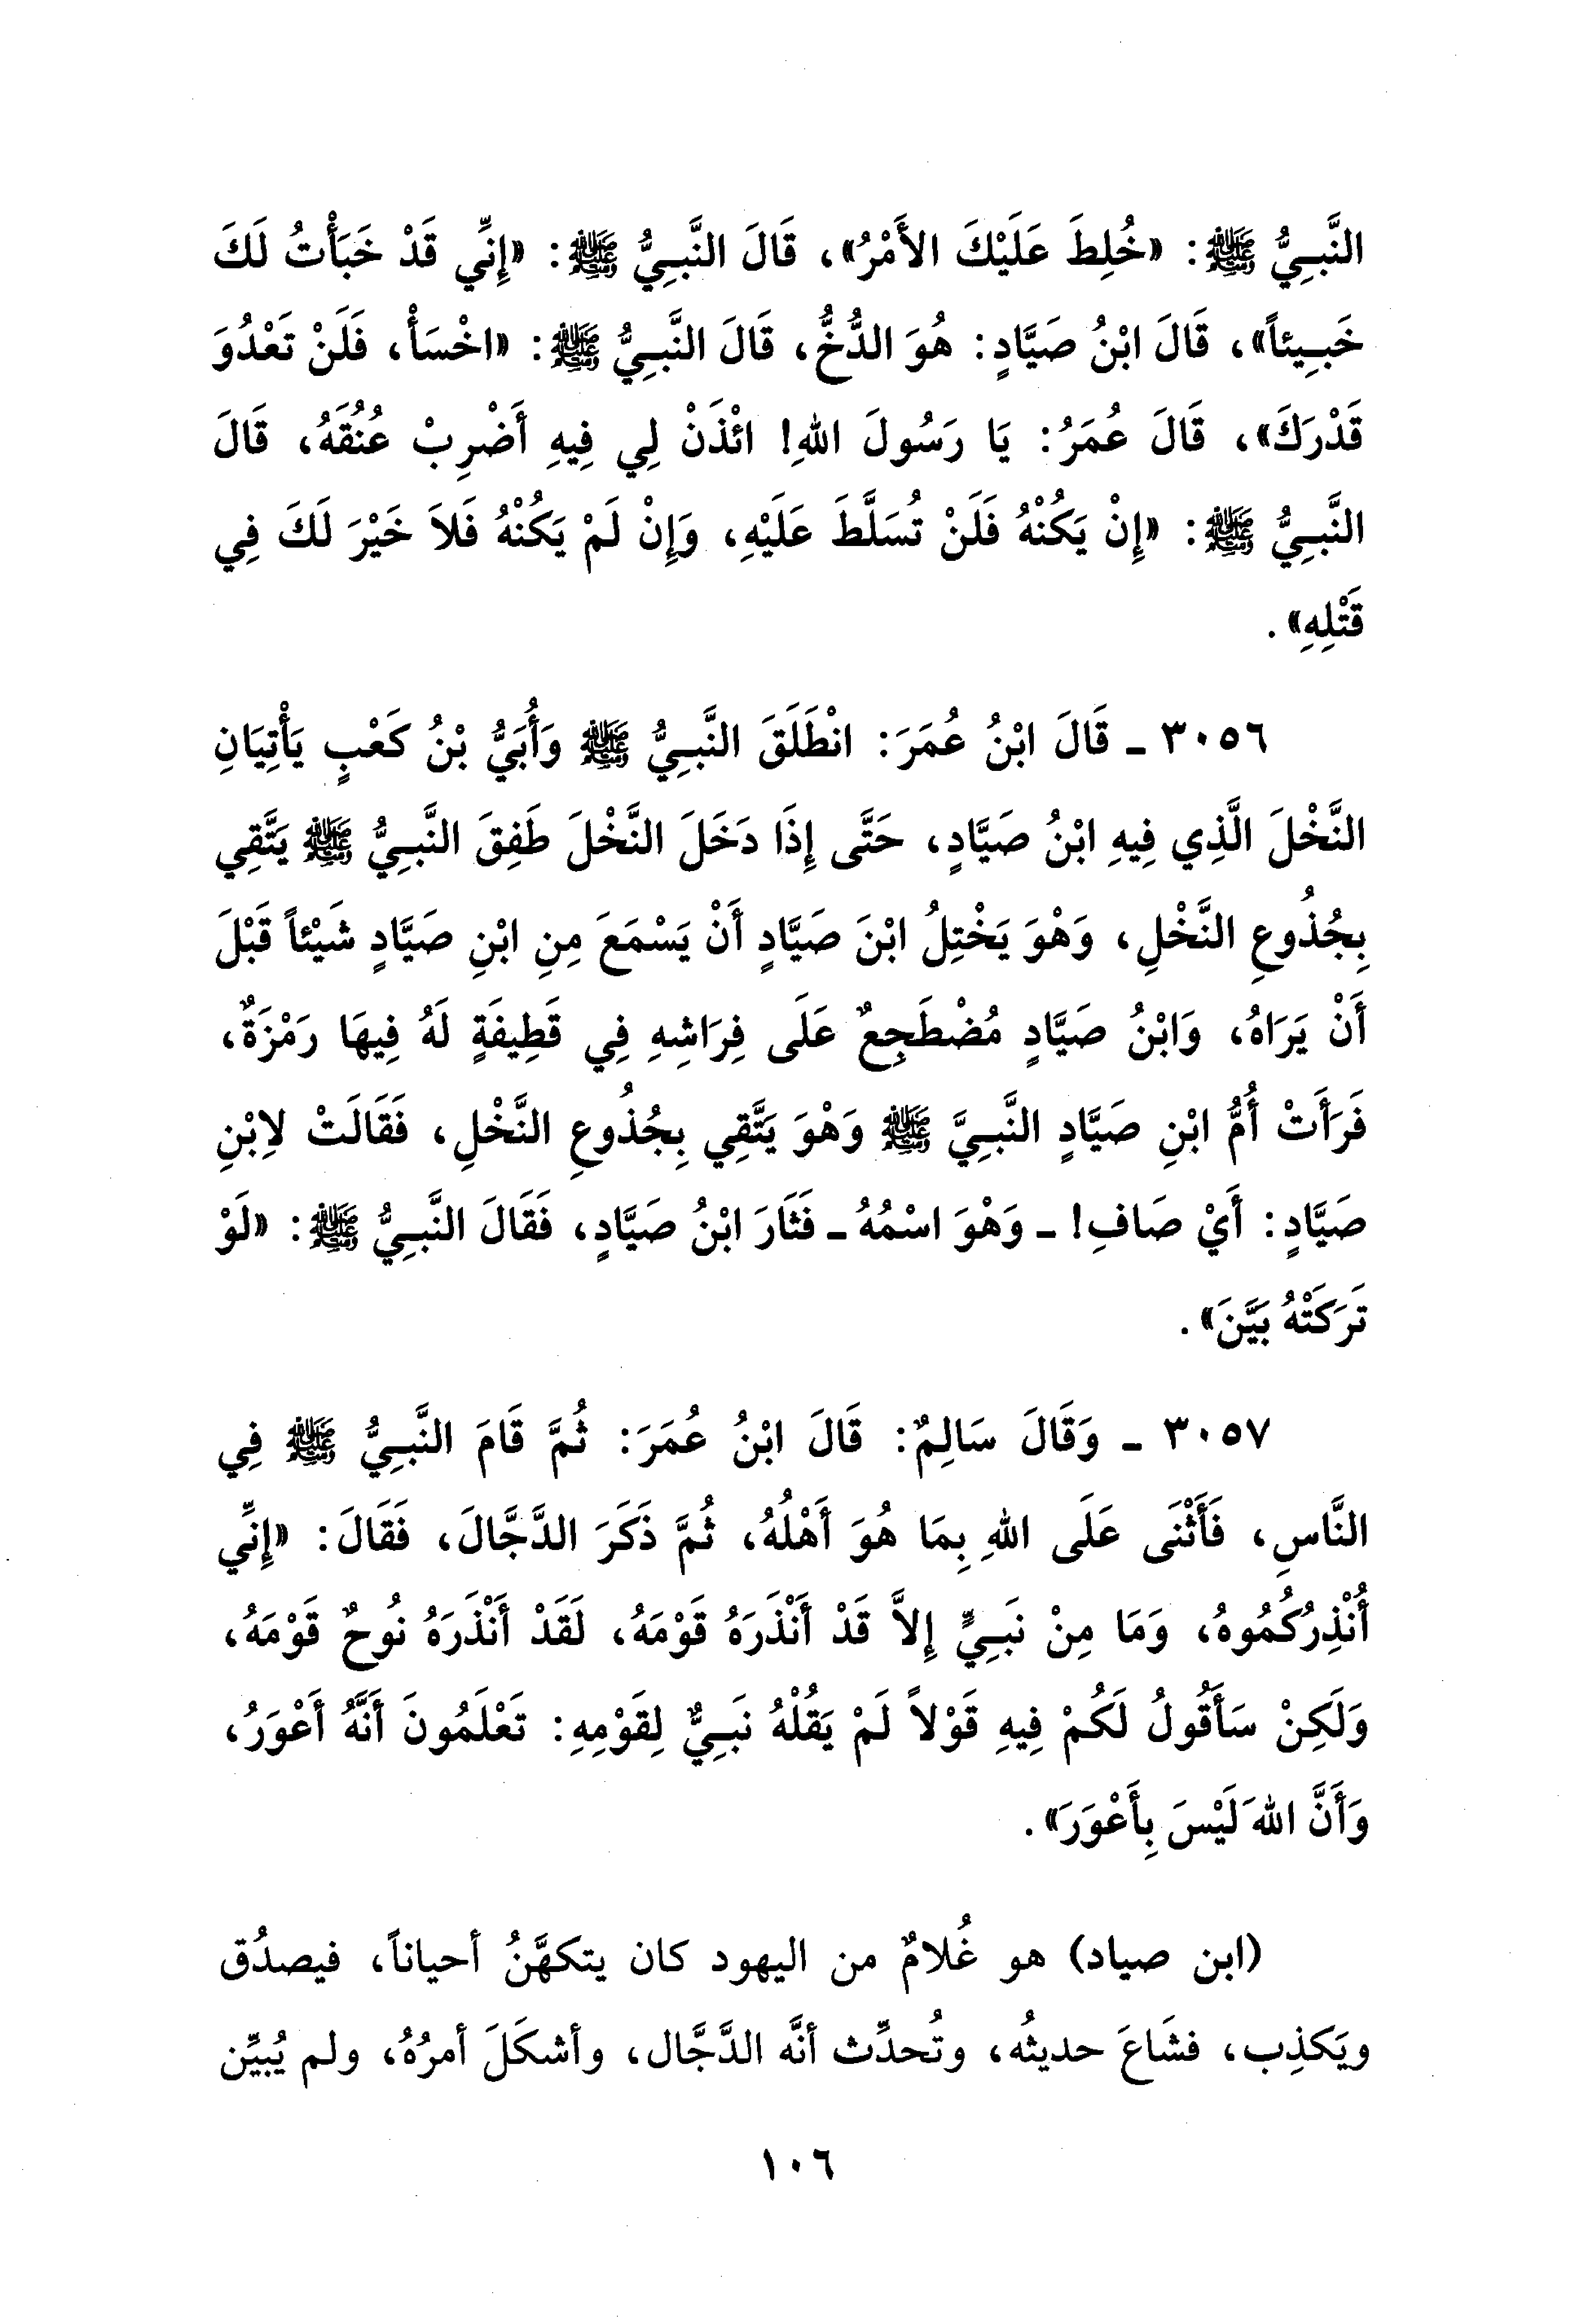 النَّبِيُّ ﷺ: «خُلِطَ عَلَيْكَ الأَمْرُ»، قَالَ النَّبِيُّ ﷺ: «إِنِّي قَدْ خَبَأْتُ لَكَ
خَبِيئاً»، قَالَ ابْنُ صَيَّادٍ: هُوَ الدُّخُّ، قَالَ النَّبِيُّ ﷺ: «اخْسَأْ، فَلَنْ تَعْدُوَ
قَدْرَكَ»، قَالَ عُمَرُ: يَا رَسُولَ اللهِ! ائْذَنْ لِي فِيهِ أَضْرِبْ عُنُقَهُ، قَالَ
النَّبِيُّ ﷺ: «إِنْ يَكُنْهُ فَلَنْ تُسَلَّطَ عَلَيْهِ، وَإِنْ لَمْ يَكُنْهُ فَلاَ خَيْرَ لَكَ فِي
قَتْلِهِ».
٣٠٥٦ - قَالَ ابْنُ عُمَرَ: انْطَلَقَ النَّبِيُّ ﷺ وَأُبَيُّ بْنُ كَعْبٍ يَأْتِيَانِ
النَّخْلَ الَّذِي فِيهِ ابْنُ صَيَّادٍ، حَتَّى إِذَا دَخَلَ النَّخْلَ طَفِقَ النَّبِيُّ ﷺ يَتَّقِي
بِجُذُوعِ النَّخْلِ، وَهْوَ يَخْتِلُ ابْنَ صَيَّادٍ أَنْ يَسْمَعَ مِنِ ابْنِ صَيَّادٍ شَيْئاً قَبْلَ
أَنْ يَرَاهُ، وَابْنُ صَيَّادٍ مُضْطَجِعٌ عَلَى فِرَاشِهِ فِي قَطِيفَةٍ لَهُ فِيهَا رَمْزَةٌ،
فَرَأَتْ أُمُّ ابْنِ صَيَّادٍ النَّبِيَّ ﷺ وَهْوَ يَتَّقِي بِجُذُوعِ النَّخْلِ، فَقَالَتْ لاِبْنِ
صَيَّادٍ: أَيْ صَافِ! - وَهْوَ اسْمُهُ - فَثَارَ ابْنُ صَيَّادٍ، فَقَالَ النَّبِيُّ ﷺ: «لَوْ
تَرَكَتْهُ بَيَّنَ».
٣٠٥٧ - وَقَالَ سَالِمٌ: قَالَ ابْنُ عُمَرَ: ثُمَّ قَامَ النَّبِيُّ ﷺ فِي
النَّاسِ، فَأَثْنَى عَلَى اللهِ بِمَا هُوَ أَهْلُهُ، ثُمَّ ذَكَرَ الدَّجَّالَ، فَقَالَ: «إِنِّي
أُنْذِرُكُمُوهُ، وَمَا مِنْ نَبِيٍّ إِلاَّ قَدْ أَنْذَرَهُ قَوْمَهُ، لَقَدْ أَنْذَرَهُ نُوحٌ قَوْمَهُ،
وَلَكِنْ سَأَقُولُ لَكُمْ فِيهِ قَوْلاً لَمْ يَقُلْهُ نَبِيٌّ لِقَوْمِهِ: تَعْلَمُونَ أَنَّهُ أَعْوَرُ،
وَأَنَّ اللهَ لَيْسَ بِأَعْوَرَ».
(ابن صياد) هو غُلامٌ من اليهود كان يتكهَّنُ أحياناً، فيصدُق
ويَكذِب، فشَاعَ حديثُه، وتُحدِّث أنَّه الدَّجَّال، وأشكَلَ أمرُهُ، ولم يُبيِّن
١٠٦